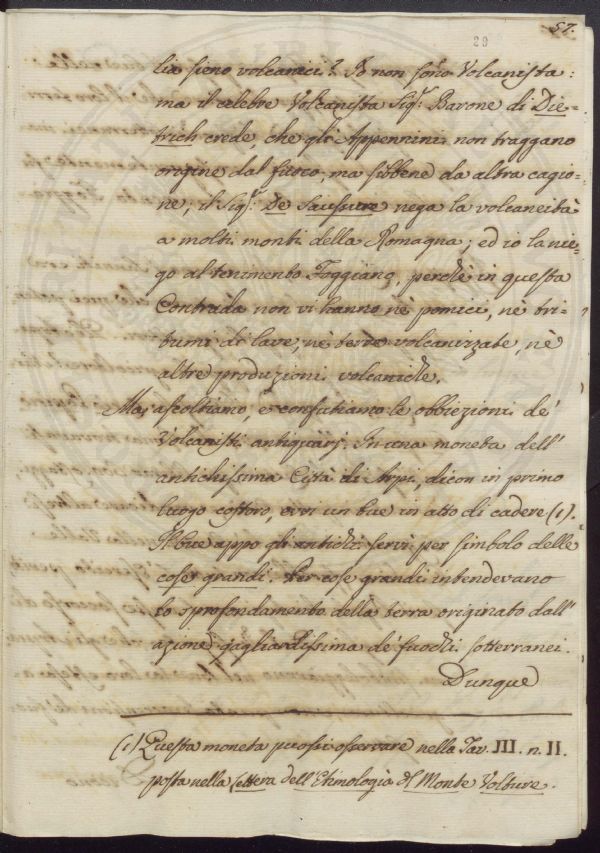 57.
29
lia sieno volcanici? Io non sono Volcanista:
ma il celebre Volcanista Sig.r Barone di Die=
trich crede, che gli Appennini non traggano
origine dal fuoco, ma sibbene da altra cagio=
ne; il Sig.r De Saussure nega la volcaneità
a molti monti della Romagna; ed io la nie=
go al tenimento Foggiano, perchè in questa
Contrada non vi hanno nè pomici, nè tri=
tumi di lave, nè terre volcanizzate, nè
altre produzioni volcaniche.
Ma, ascoltiamo, e confutiamo le obbiezioni de'
Volcanisti antiquarj. In una moneta dell'
antichissima Città di Arpi, dicon in primo
luogo costoro, evvi un bue in atto di cadere (1).
Il bue appo gli antichi servì per simbolo delle
cose grandi. Per cose grandi intendevano
lo sprofondamento della terra originato dall'
azione gagliardissima de' fuochi sotterranei.
Dunque
(1) Questa moneta puossi osservare nella Tav. III. n. II.
posta nella Lettera dell'Etimologia del Monte Volture.